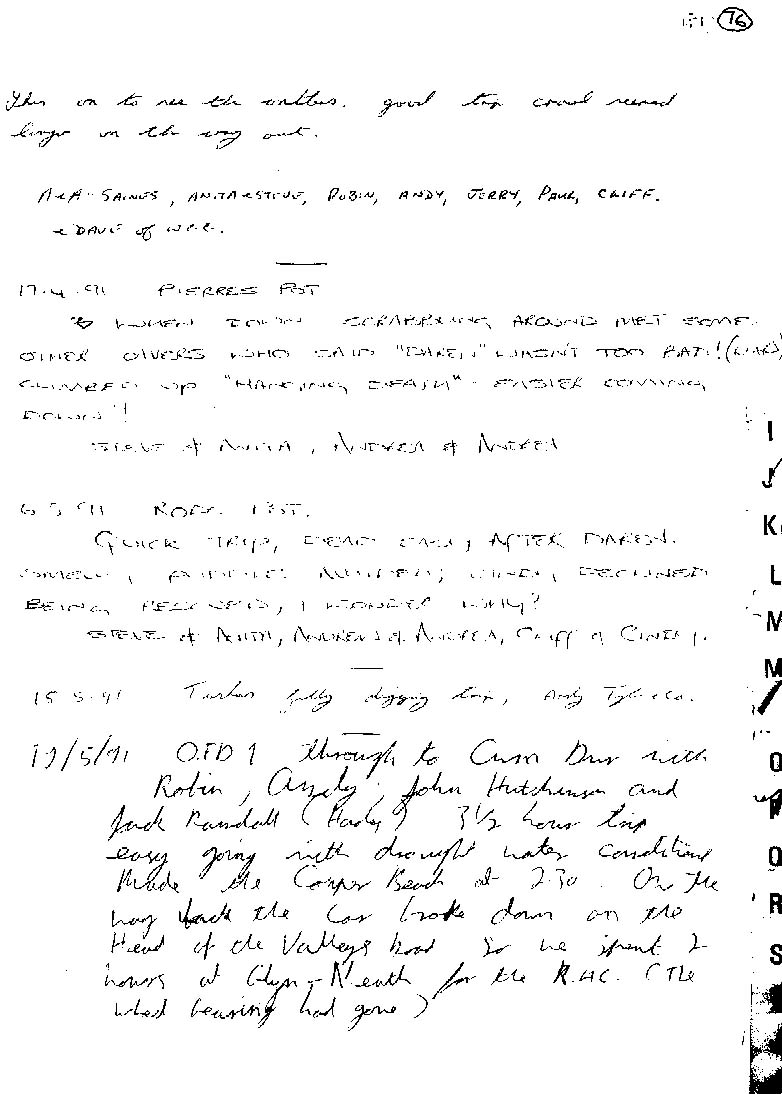 76
on to see the good trip crawl seemed
longer on the way out.
A & A SAINES, ANITA & STEVE, ROBIN, ANDY, JERRY, PAUL, CLIFF.
& DAVE of W.C.C.
17.4.91 PIERRES POT
WHEN DOWN AROUND MET SOME
OTHER WHO SAID "DAREN" WASN'T TOO BAD! (LIARS)
CLIMBED UP "HANGING DEATH" EASIER COMING
DOWN!!
STEVE & ANITA, ANDREA & ANDREA
6 5 91 POT.
QUICK TRIP, DEAD AFTER DAREN.
DECLINED
BEING RESCUED, I WONDER WHY?
STEVE & ANITA, & ANDREA, CLIFF & CINDY.
15 5.91 gully digging trip, Andy
19/5/91 O.F.D 1 through to Cwm Dwr with
Robin, Andy, John Hutchinson and
Jack Randall 3 1/2 hour trip
easy going with drought water conditions
Made the Beach at 2.30. On the
way back the car broke down on the
Head of the Valleys Road so we spent 2
hours at Glyn-Neath for the R.A.C. (The
wheel bearing had gone)
I
J
K
L
M
M
O
P
Q
R
S